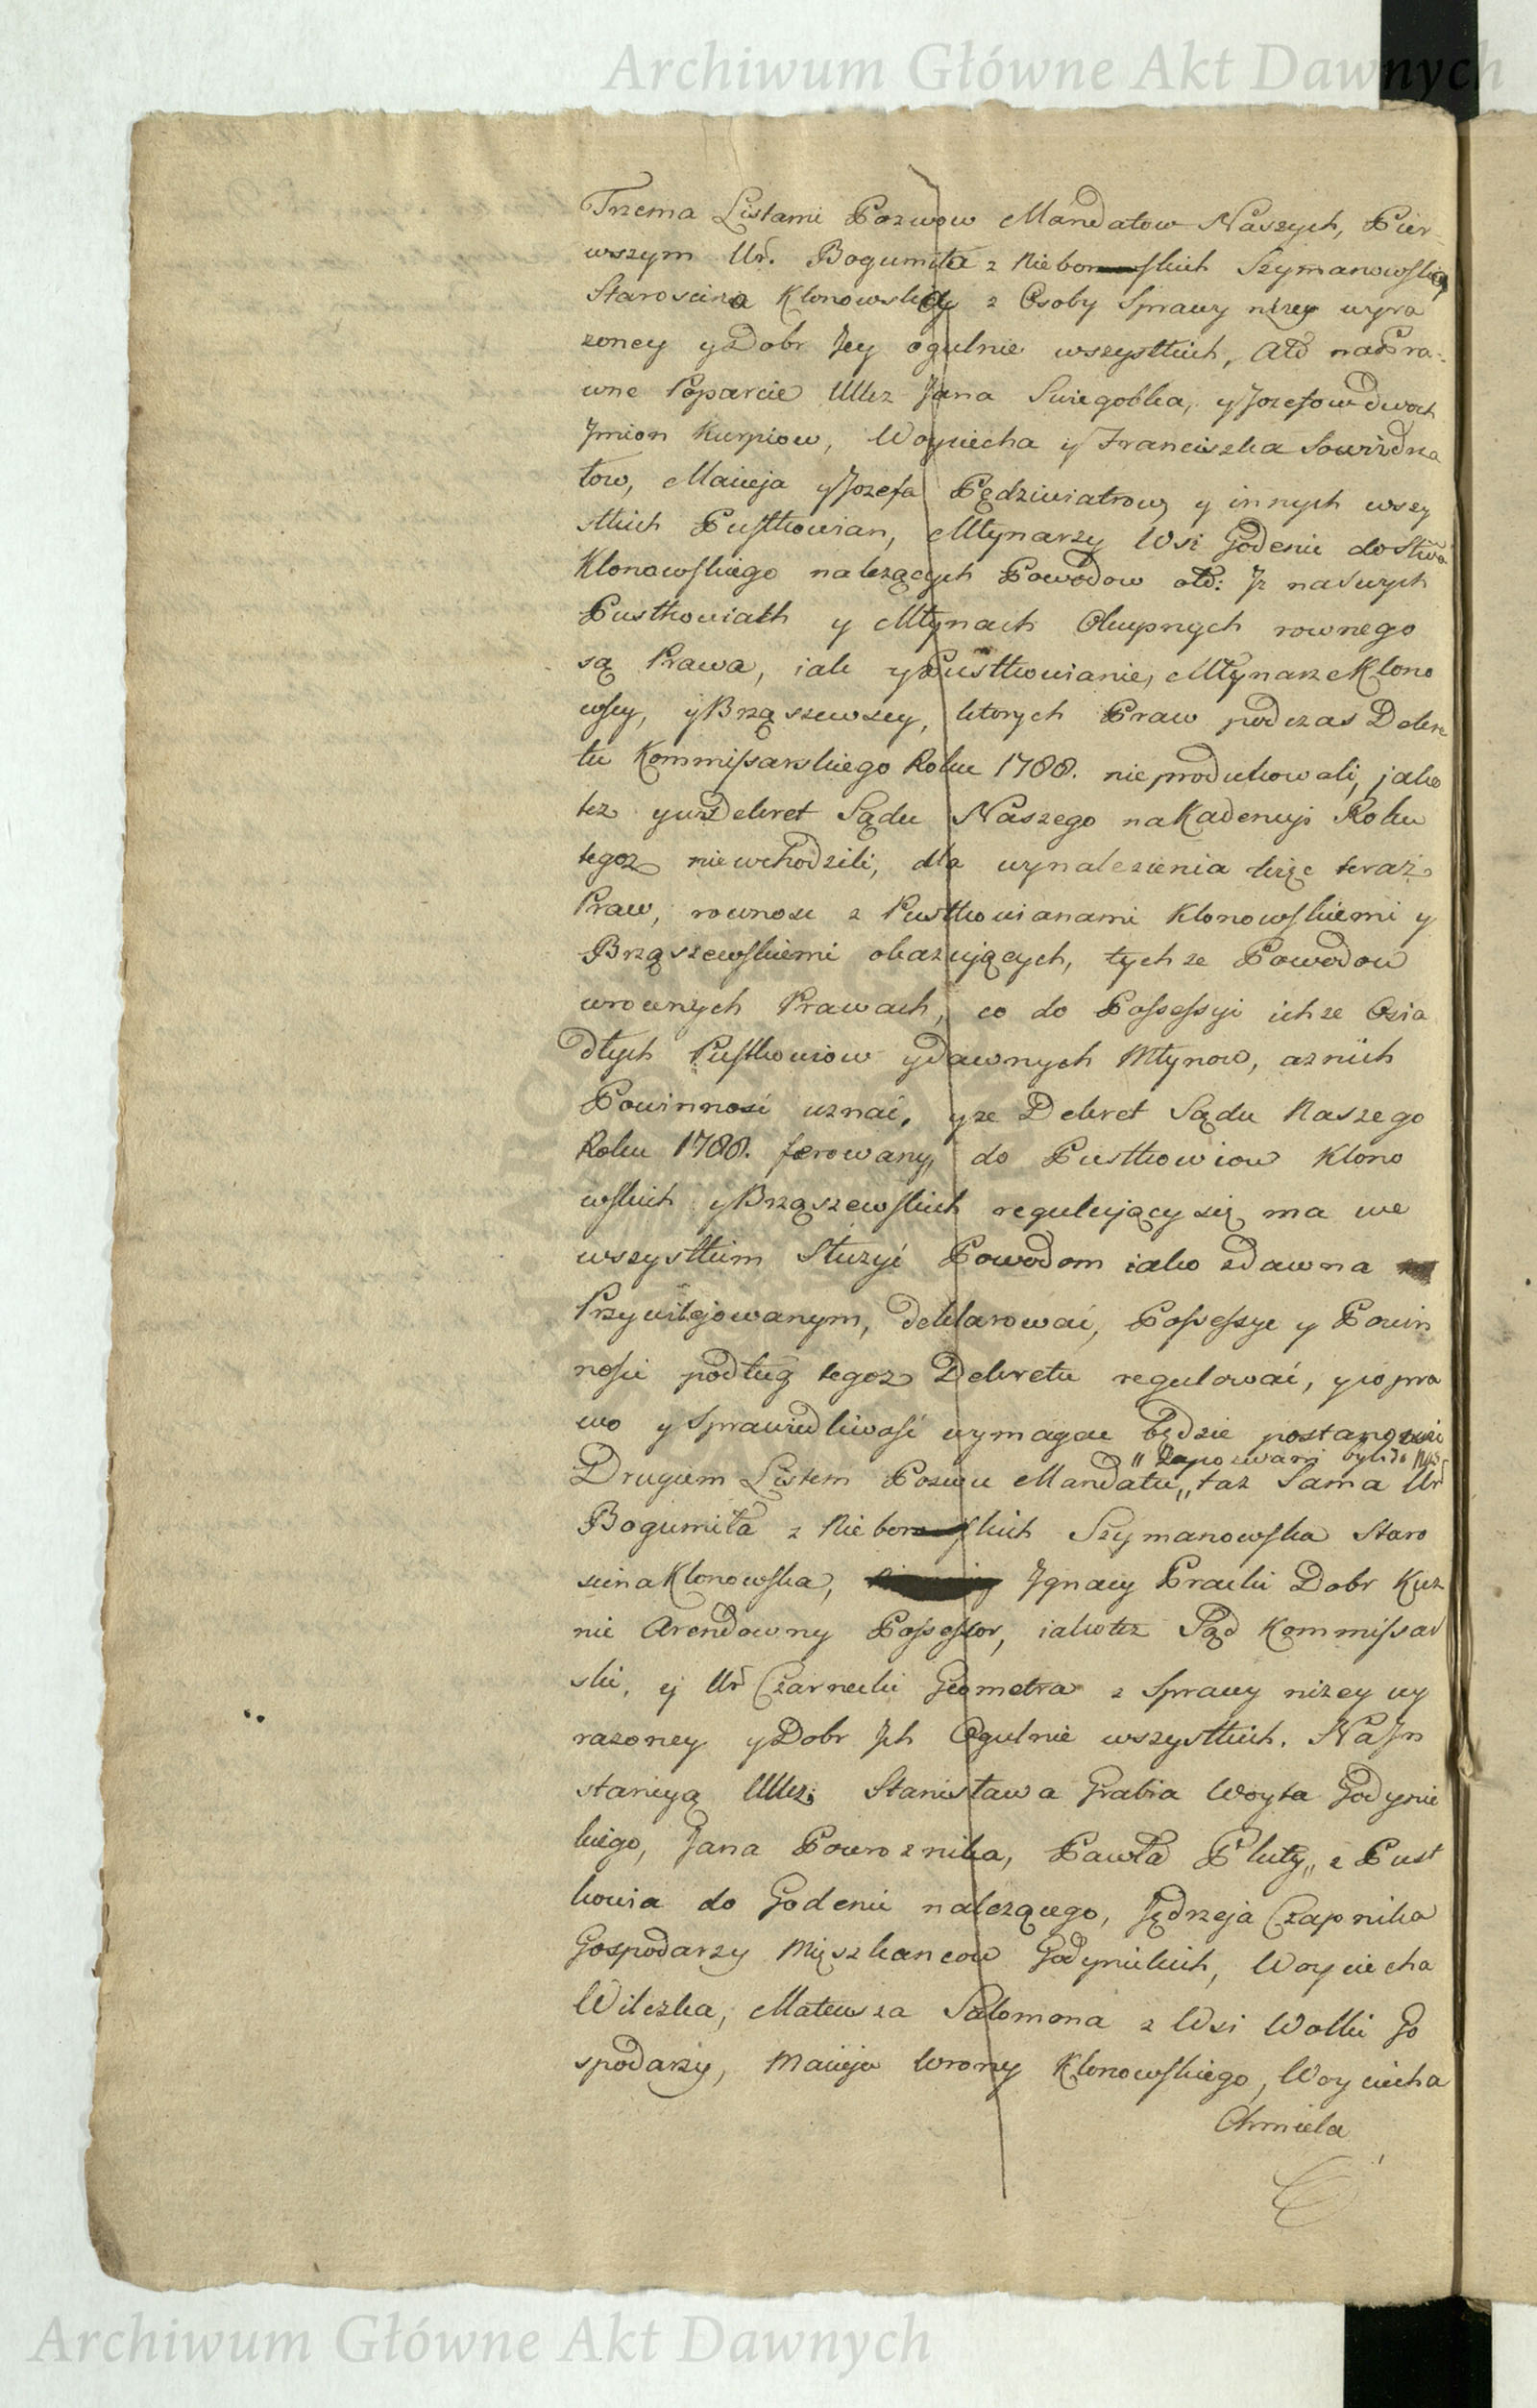 Archiwum Główne Akt Dawnych
Trzema Listami Pozwow Mandatow Naszych, Pier-
wszym Ur. Bogumiła z Nieborskich Szymanowską
Starościna Klonowską z Osoby Sprawy niżey wyra
zoney y Dobr Jey ogulnie wszystkich, Ato na Pra-
wne Poparcie UUcz Jana Swiegobka, y Jozefow dwoch
Jmion Kurpiow, Woyciecha y Franciszka Sowizdrza
łow, Macieja y Jozefa Pędziwiatrow, y innych wszy
stkich Pustkowian, Młynarzy Wsi Godenic do Stwa
Klonowskiego należących Powodow oto: Jż na swych
Pustkowiach y Młynach Okupnych rownego
są Prawa, iak y Pustkowianie, Młynarze Klono
wscy, y Brząszewscy, ktorych Praw podczas Dekre
tu Kommissarskiego Roku 1788. nieprodukowali, jako
tez y w Dekret Sądu Naszego na Kadencyi Roku
tegoz niewchodzili, dla wynalezienia tychże teraz
Praw, rownosc z Pustkowianami Klonowskiemi y
Brząszewskiemi okazujących, tychze Powodow
w rownych Prawach, co do Possessyi ichze Osia
dłych Pustkowiow y dawnych Młynow, a z nich
Powinnosć uznać, y ze Dekret Sądu Naszego
Roku 1788. ferowany, do Pustkowiow Klono
wskich y Brząszewskich regulujący się, ma we
wszystkim służyć Powodom iako zdawna
Przywilejowanym, deklarować, Possessye y Powin
nosci podług tegoz Dekretu regulować, y co pra
wo y Sprawiedliwość wymagac będzie postanowić
" Zapozwani byli do Nas
Drugiem Listem Pozwu Mandatu,, taz Sama Ur
Bogumiła z Nieborskich Szymanowska Staro
scina Klonowska, Jgnacy Pracki Dobr Kuz
nic Arendowny Possessor, iako tez Sąd Kommissar
ski, y Ur Czarnecki Geometra z Sprawy nizey wy
razoney y Dobr Jch Ogulnie wszystkich. Na Jn
stancyą UUcz: Stanisława Grabia Woyta Godynic
kiego, Jana Powroznika, Pawła Pluty,, z Pust
kowia do Godenic należącego, Jędrzeja Czapnika
Gospodarzy Mięszkancow Godynickich, Woyciecha
Wilczka, Mateusza Salomona z Wsi Wolki Go
spodarzy, Macieja Wrony Klonowskiego, Woyciecha
Chmiela
Archiwum Główne Akt Dawnych